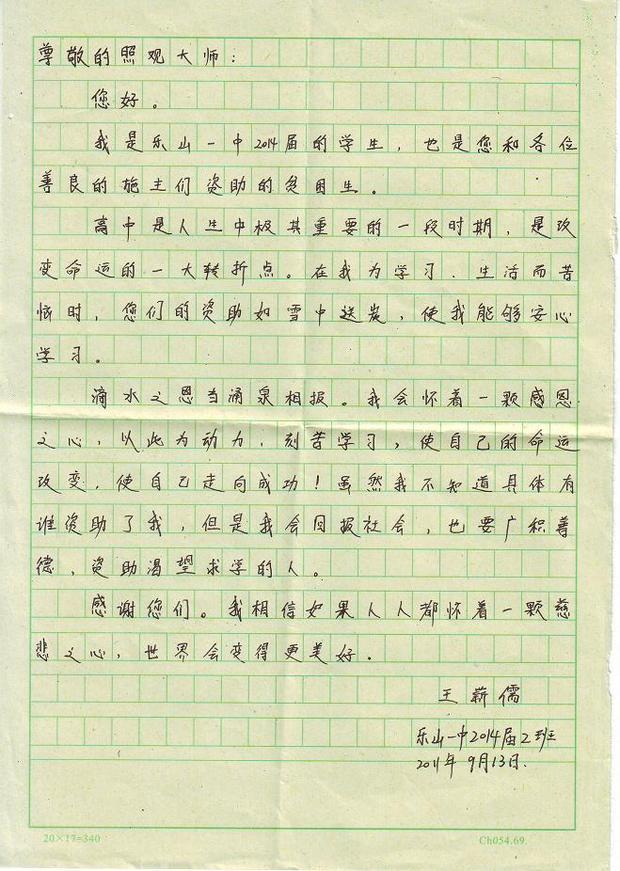 尊敬的照观大师：
您好。
我是乐山一中2014届的学生，也是您和各位
善良的施主们资助的贫困生。
高中是人生中极其重要的一段时期，是改
变命运的一大转折点。在我为学习、生活而苦
恼时，您们的资助如雪中送炭，使我能够安心
学习。
滴水之恩当涌泉相报。我会怀着一颗感恩
之心，以此为动力，刻苦学习，使自己的命运
改变，使自己走向成功！虽然我不知道具体有
谁资助了我，但是我会回报社会，也要广积善
德，资助渴望求学的人。
感谢您们。我相信如果人人都怀着一颗慈
悲之心，世界会变得更美好。
王薪儒
乐山一中2014届2班
2011年9月13日.
20×17=340 Ch054.69.